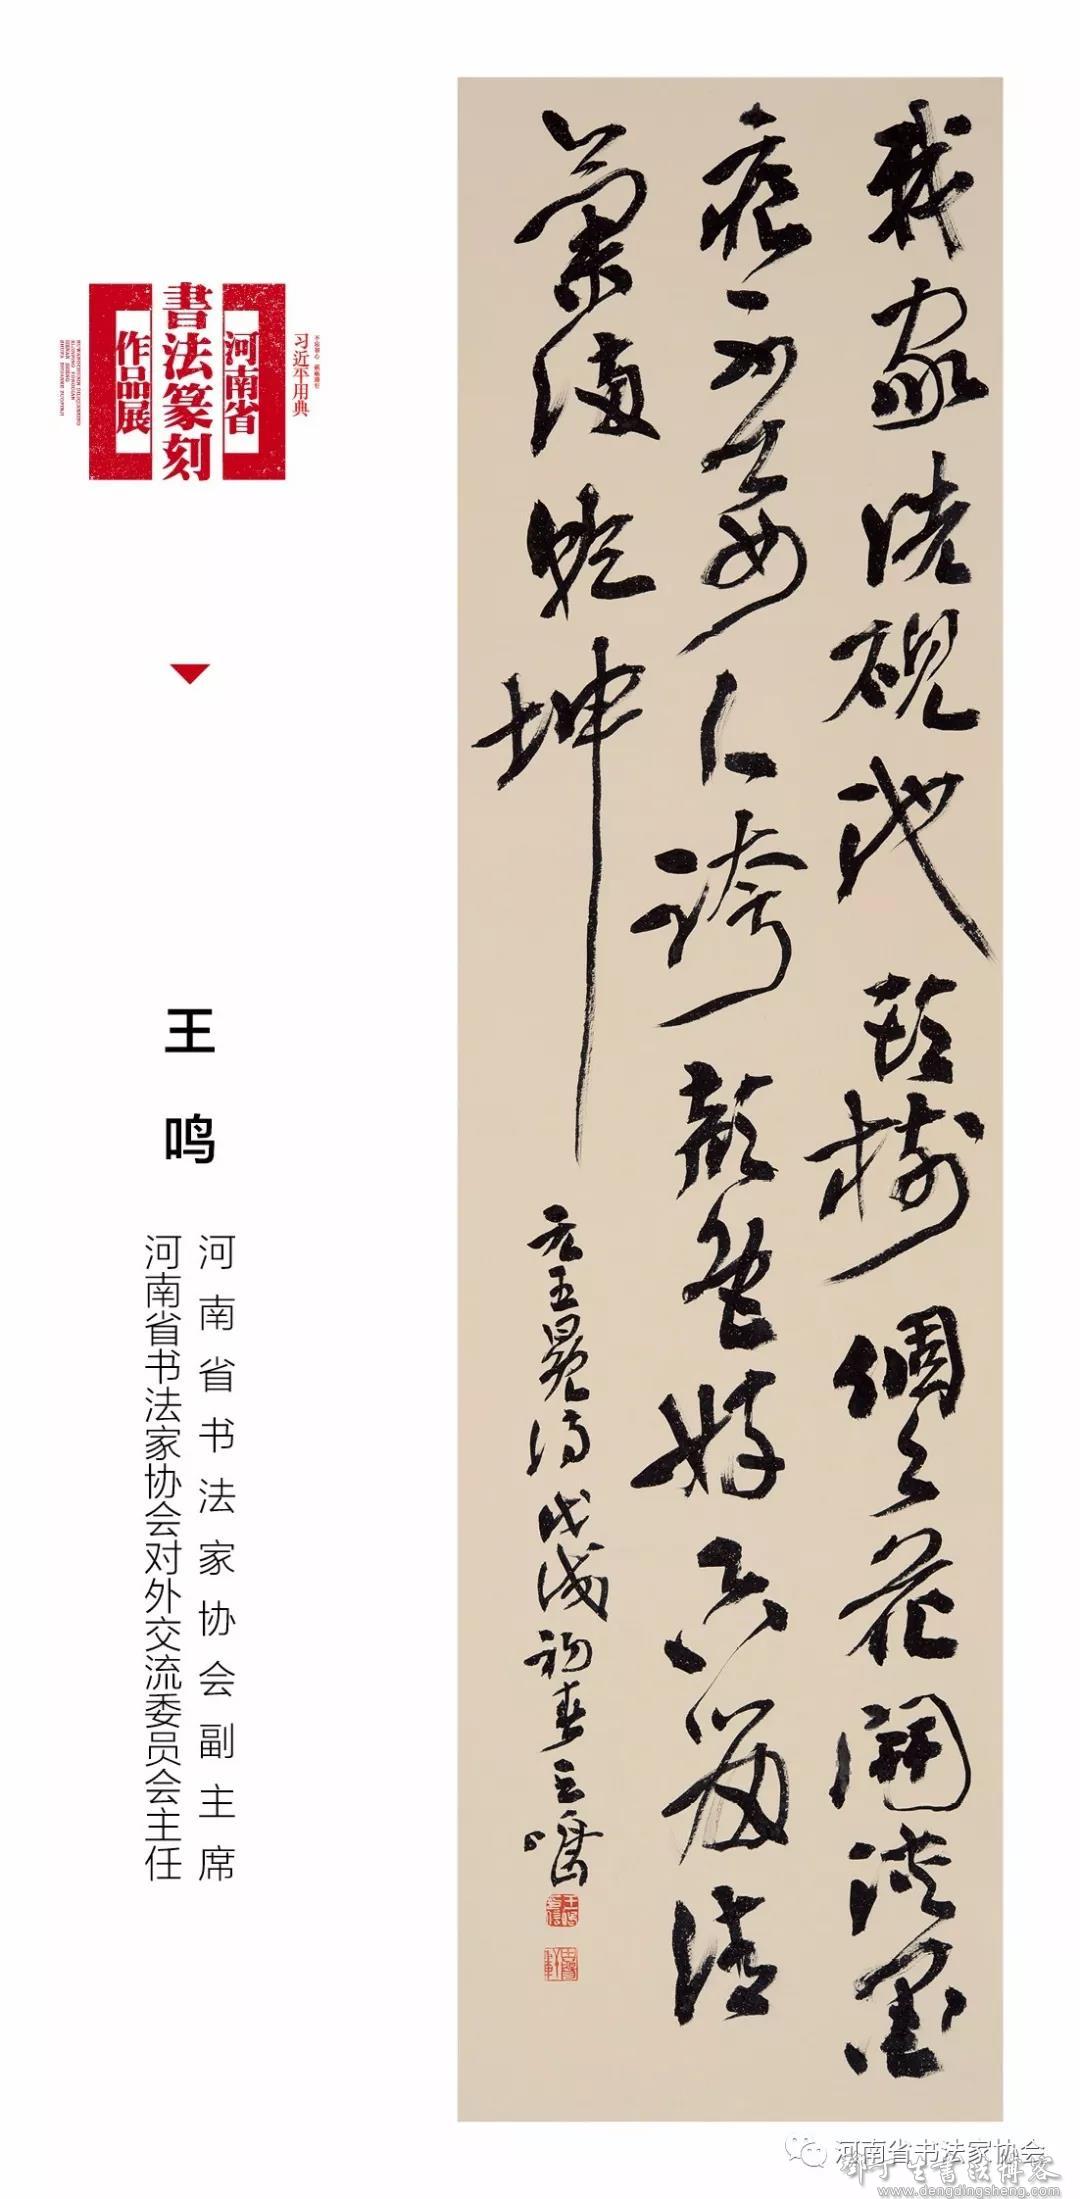 我家洗硯池頭樹個々花開淡墨
痕不要人誇顏色好只留清
氣滿乾坤
元王冕詩戊戌初春王鳴
习近平用典
河南省
書法篆刻
作品展
王鸣
河南省书法家协会副主席
河南省书法家协会对外交流委员会主任
河南省书法家协会
邓丁生书法博客
www.dengdingsheng.com